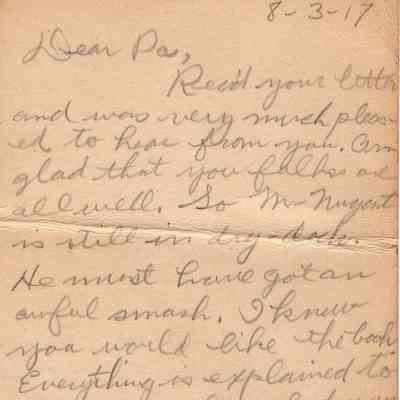 8-3-17
Dear Pa,
Rec'd your letter
and was very much pleas-
ed to hear from you. Am
glad that you folks are
all well. So Mr Nugent
is still in dry-dock.
He must have got an
awful smash. I knew
you would like the book
Everything is explained to